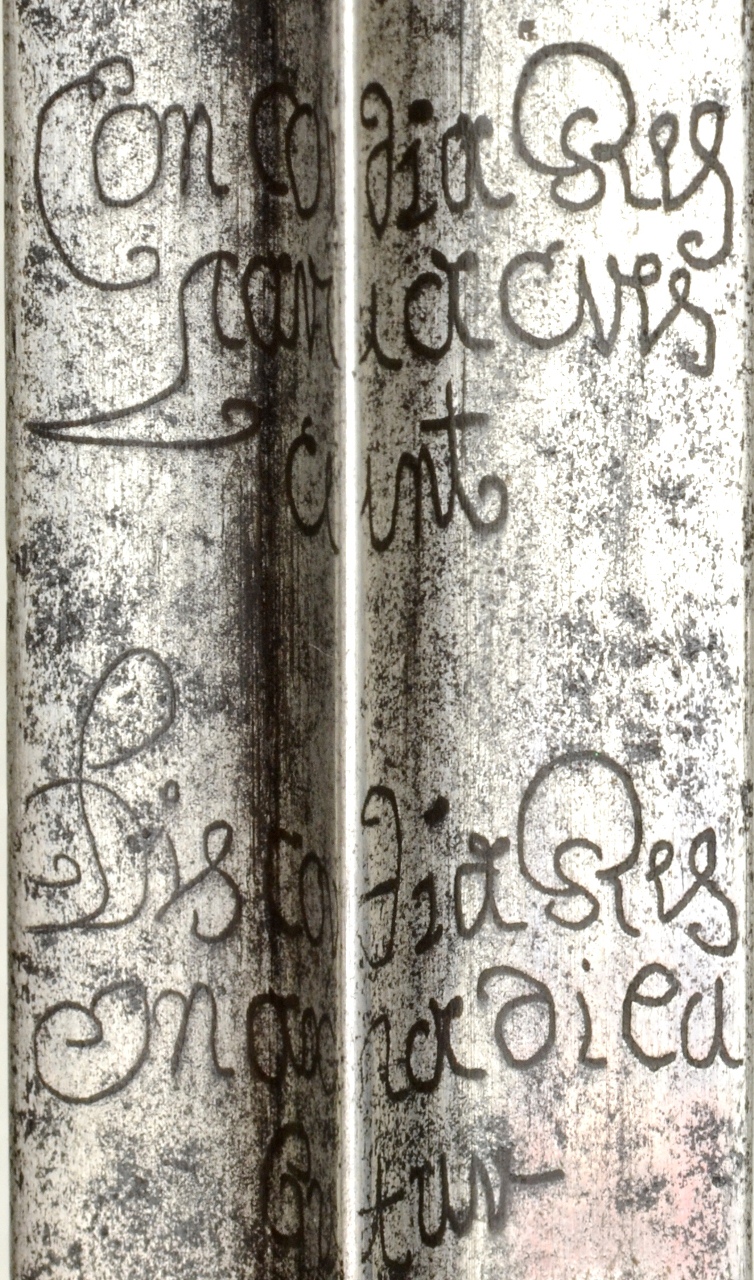 Concordia Res
parua Cres
cunt
Discordia Res
magna dieu